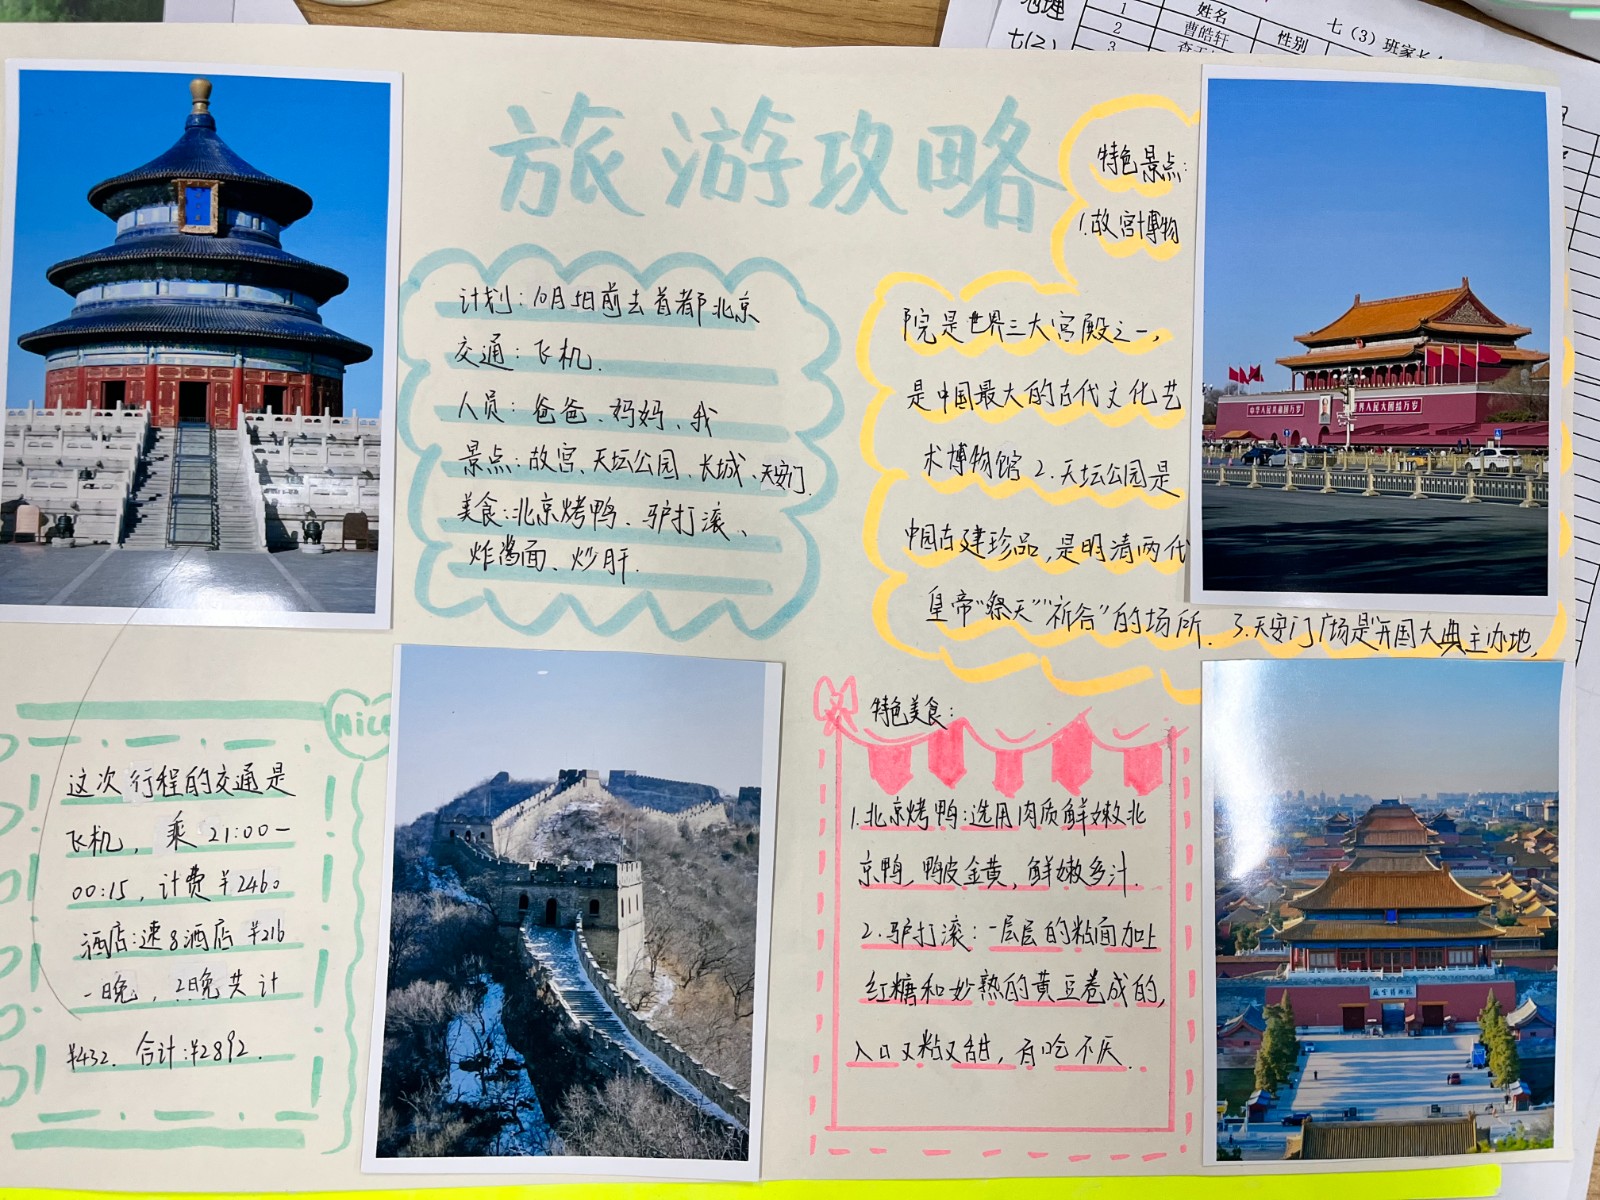 旅游攻略
计划：10月5日前去首都北京
交通：飞机.
人员：爸爸、妈妈、我
景点：故宫、天坛公园、长城、天安门.
美食：北京烤鸭、驴打滚、
炸酱面、炒肝.
特色景点：
1.故宫博物
院是世界三大宫殿之一，
是中国最大的古代文化艺
术博物馆 2.天坛公园是
中国古建珍品，是明清两代
皇帝“祭天”“祈谷”的场所. 3.天安门广场是开国大典主办地，
Nice
这次行程的交通是
飞机，乘 21:00—
00:15，计费￥2460
酒店：速8酒店 ￥216
一晚，2晚共计
￥432. 合计：￥2892.
特色美食：
1.北京烤鸭：选用肉质鲜嫩北
京鸭，鸭皮金黄，鲜嫩多汁.
2.驴打滚：一层层的粘面加上
红糖和炒熟的黄豆卷成的，
入口又粘又甜，百吃不厌.
中华人民共和国万岁
世界人民大团结万岁
故宫博物院
1
姓名
2
曹皓轩
3
性别
七（3）班家长
地理
七(2)